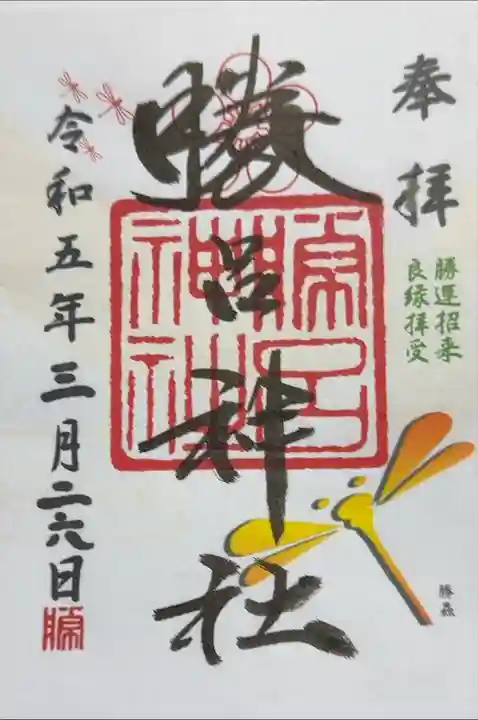 奉拝
勝運招来
良縁拝受
勝呂神社
勝呂神社
令和五年三月二六日
勝
勝蟲